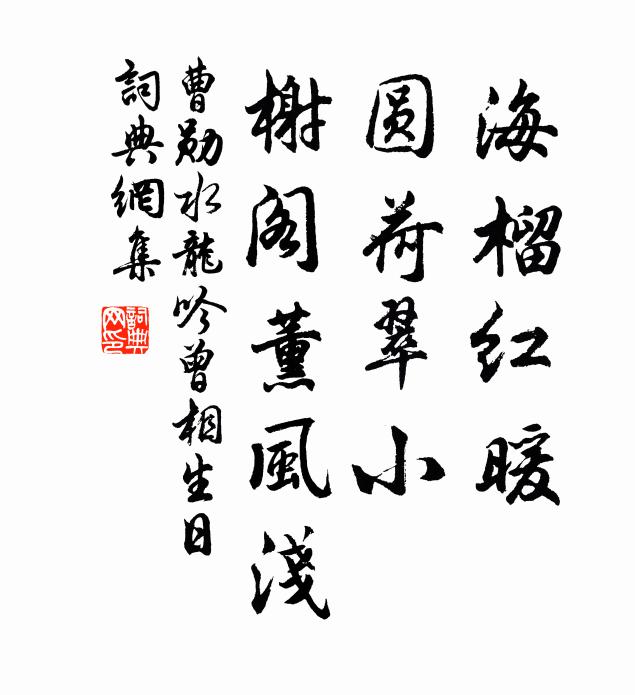 海榴红暖
圆荷翠小
榭阁薰風淺
曹勋水龍吟曾相生日
詞典網集
詞典
网印